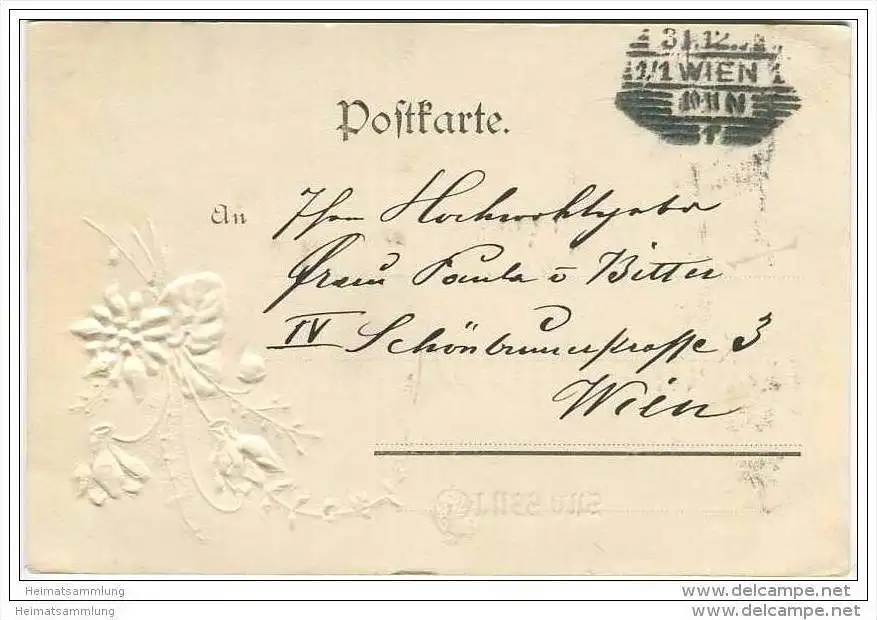 31.12.
1/1 WIEN 1
10-11 N
Postkarte.
An
Hochwohlgebor
Frau Paula v Bitter
IV Schönbrunerstrasse 3
Wien
Heimatsammlung
www.delcampe.net
Heimatsammlung
www.delcampe.net